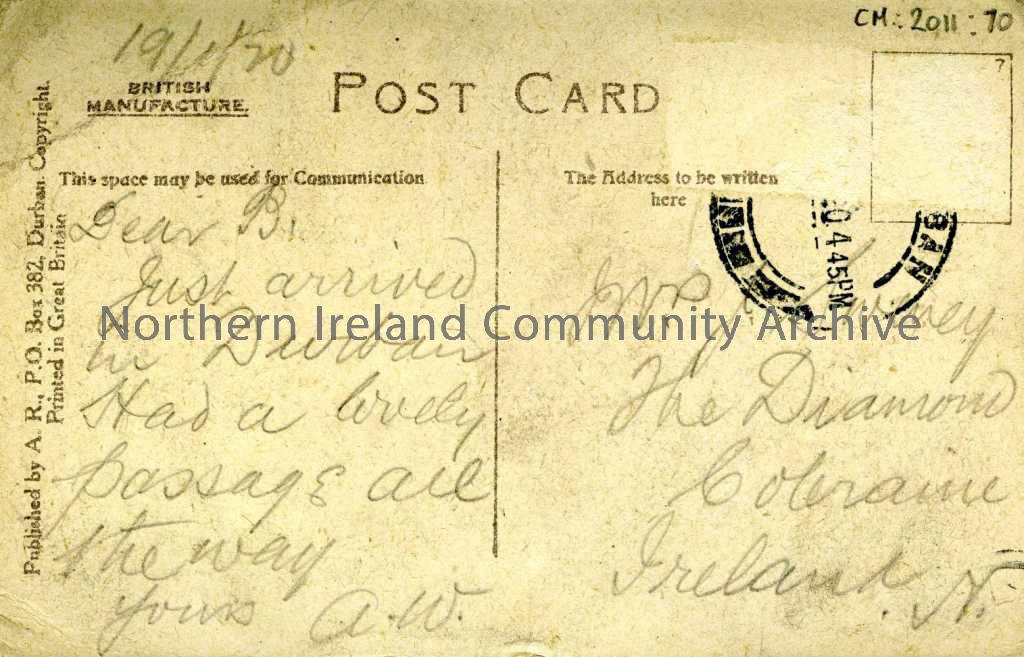 CM: 2011: 70
19/1/20
BRITISH
MANUFACTURE.
POST CARD
7
This space may be used for Communication
The Address to be written
here
Published by A. R., P.O. Box 382, Durban. Copyright.
Printed in Great Britain
Dear B.
Just arrived
in Durban
Had a lovely
passage all
the way
yours A.W.
0 4 45PM
BAN
Mrs
The Diamond
Colraine
Ireland. N.
Northern Ireland Community Archive